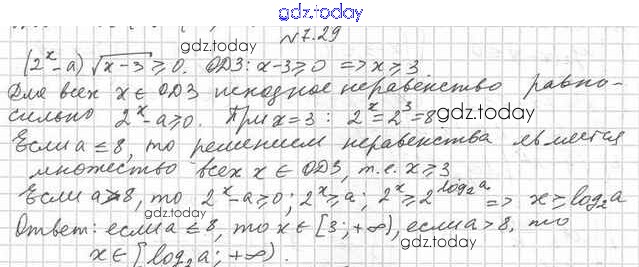 gdz.today
№7.29
(2^x-a)√(x-3)≥0. ОДЗ: x-3≥0 => x≥3
gdz.today
Для всех x∈ОДЗ исходное неравенство равно-
сильно 2^x-a≥0. При x=3: 2^x=2^3=8
gdz.today
Если a≤8, то решением неравенства является
множество всех x∈ОДЗ, т.е. x≥3.
gdz.today
Если a>8, то 2^x-a≥0; 2^x≥a; 2^x≥2^(log₂a) => x≥log₂a
gdz.today
Ответ: если a≤8, то x∈[3;+∞), если a>8, то
gdz.today
x∈[log₂a;+∞).
gdz.today